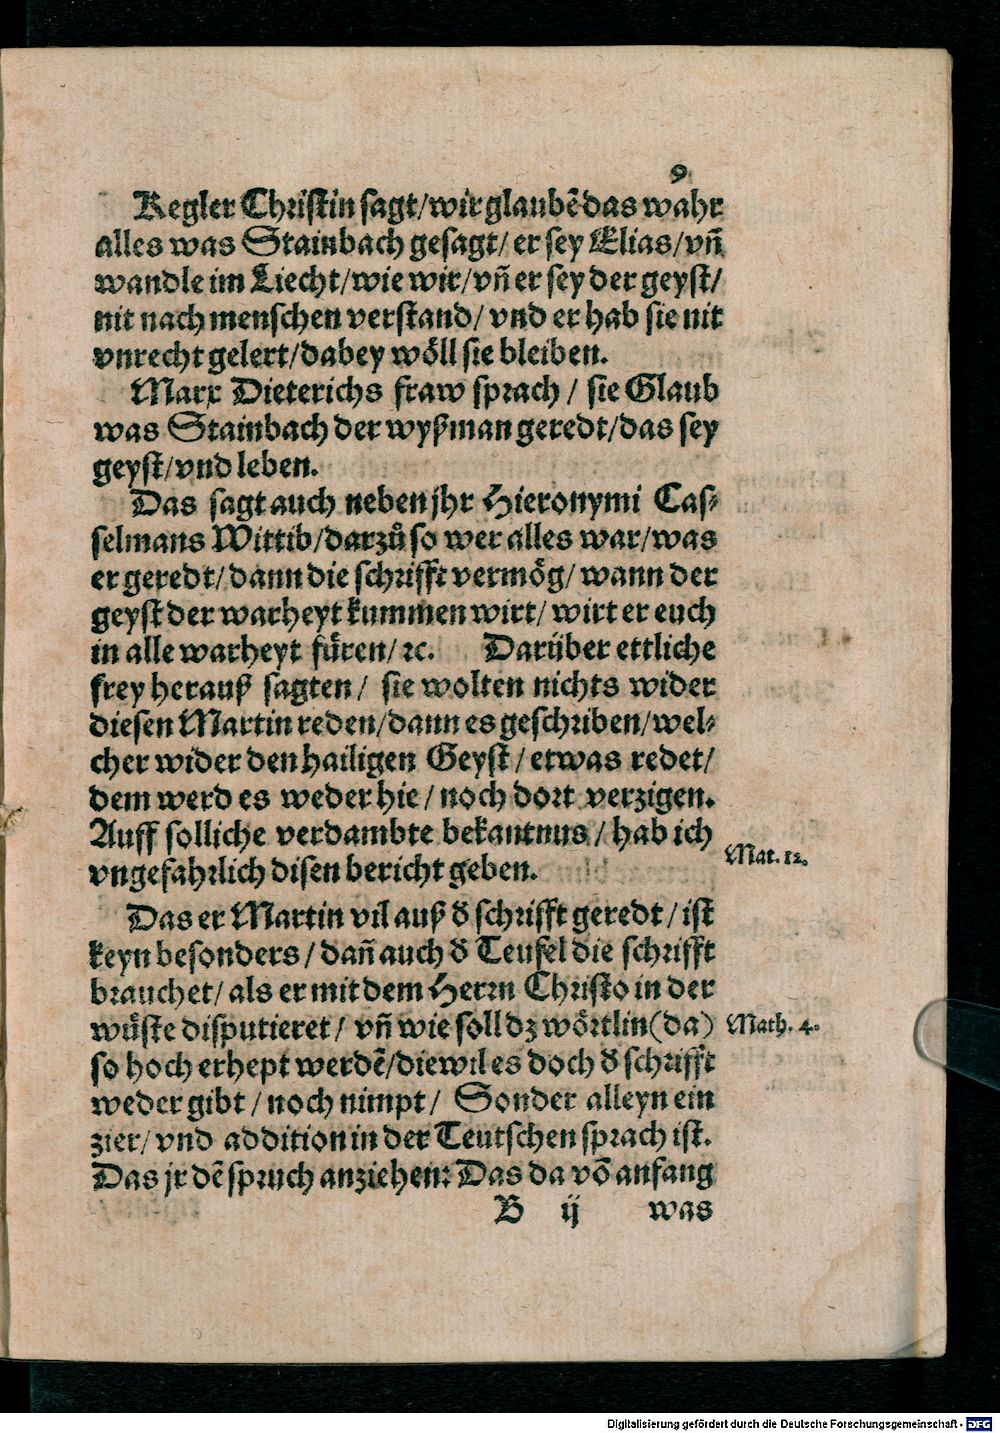 9
Kegler Christin sagt/wir glaubẽ das wahr
alles was Stainbach gesagt/ er sey Elias/vñ
wandle im Liecht/wie wir/vñ er sey der geyst/
nit nach menschen verstand/ vnd er hab sie nit
vnrecht gelert/dabey wöll sie bleiben.
Marx Dieterichs fraw sprach / sie Glaub
was Stainbach der wyßman geredt/das sey
geyst/vnd leben.
Das sagt auch neben jhr Hieronymi Cas⸗
selmans Wittib/darzů so wer alles war/was
er geredt/dann die schrifft vermög/wann der
geyst der warheyt kummen wirt/ wirt er euch
in alle warheyt füren/ ꝛc. Darüber ettliche
frey herauß sagten/ sie wolten nichts wider
diesen Martin reden/dann es geschriben/wel⸗
cher wider den hailigen Geyst/etwas redet/
dem werd es weder hie/noch dort verzigen.
Auff solliche verdambte bekantnus/hab ich
vngefahrlich disen bericht geben.
Mat. 12.
Das er Martin vil auß ð schrifft geredt/ist
keyn besonders/dañ auch ð Teufel die schrifft
brauchet/als er mit dem Herrn Christo in der
wüste disputieret/ vñ wie soll dz wörtlin(da)
Math. 4.
so hoch erhept werdẽ/diewil es doch ð schrifft
weder gibt/noch nimpt/ Sonder alleyn ein
zier/vnd addition in der Teutschen sprach ist.
Das jr dẽ spruch anziehen: Das da võ anfang
B ij was
Digitalisierung gefördert durch die Deutsche Forschungsgemeinschaft - DFG